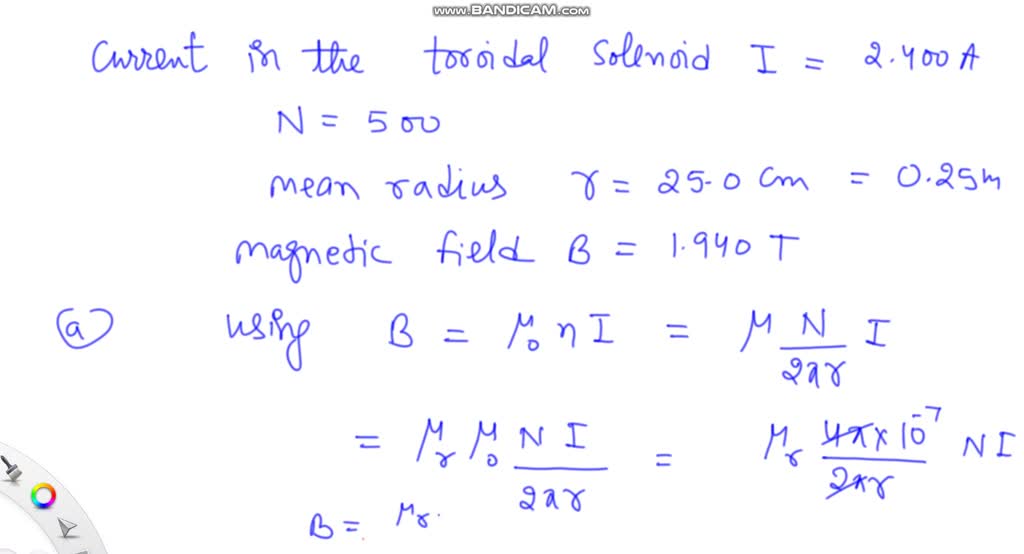 www.BANDICAM.com
Current in the toroidal solenoid I = 2.400 A
N = 500
mean radius r = 25.0 cm = 0.25m
magnetic field B = 1.940 T
(a) using B = μ₀ n I = μ N/2πr I
= μᵣ μ₀ N I/2πr = μᵣ 4π×10⁻⁷/2πr N I
B = μᵣ.